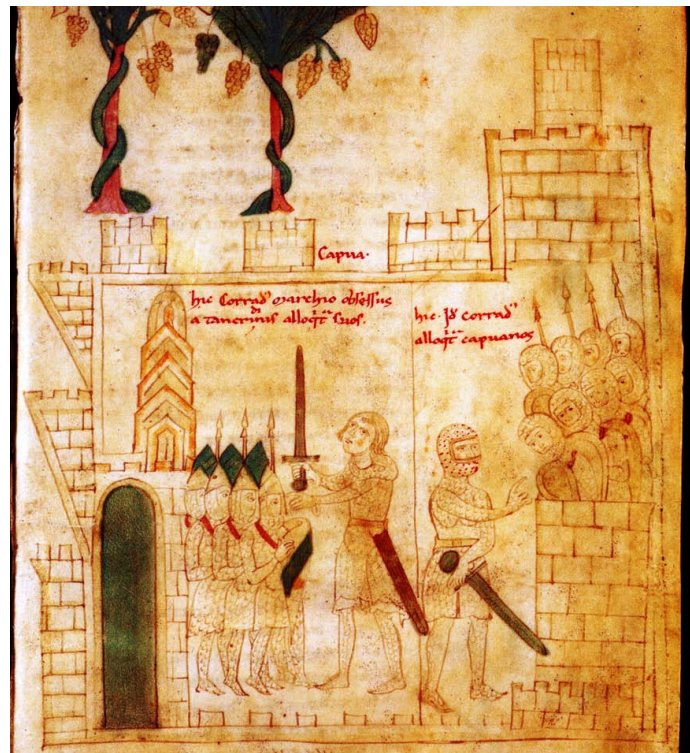 Capua.
hic Corrad' marchio obsessus
a Tancrinis alloqt' suos.
hic. Id corrad'
alloqt' capuanos